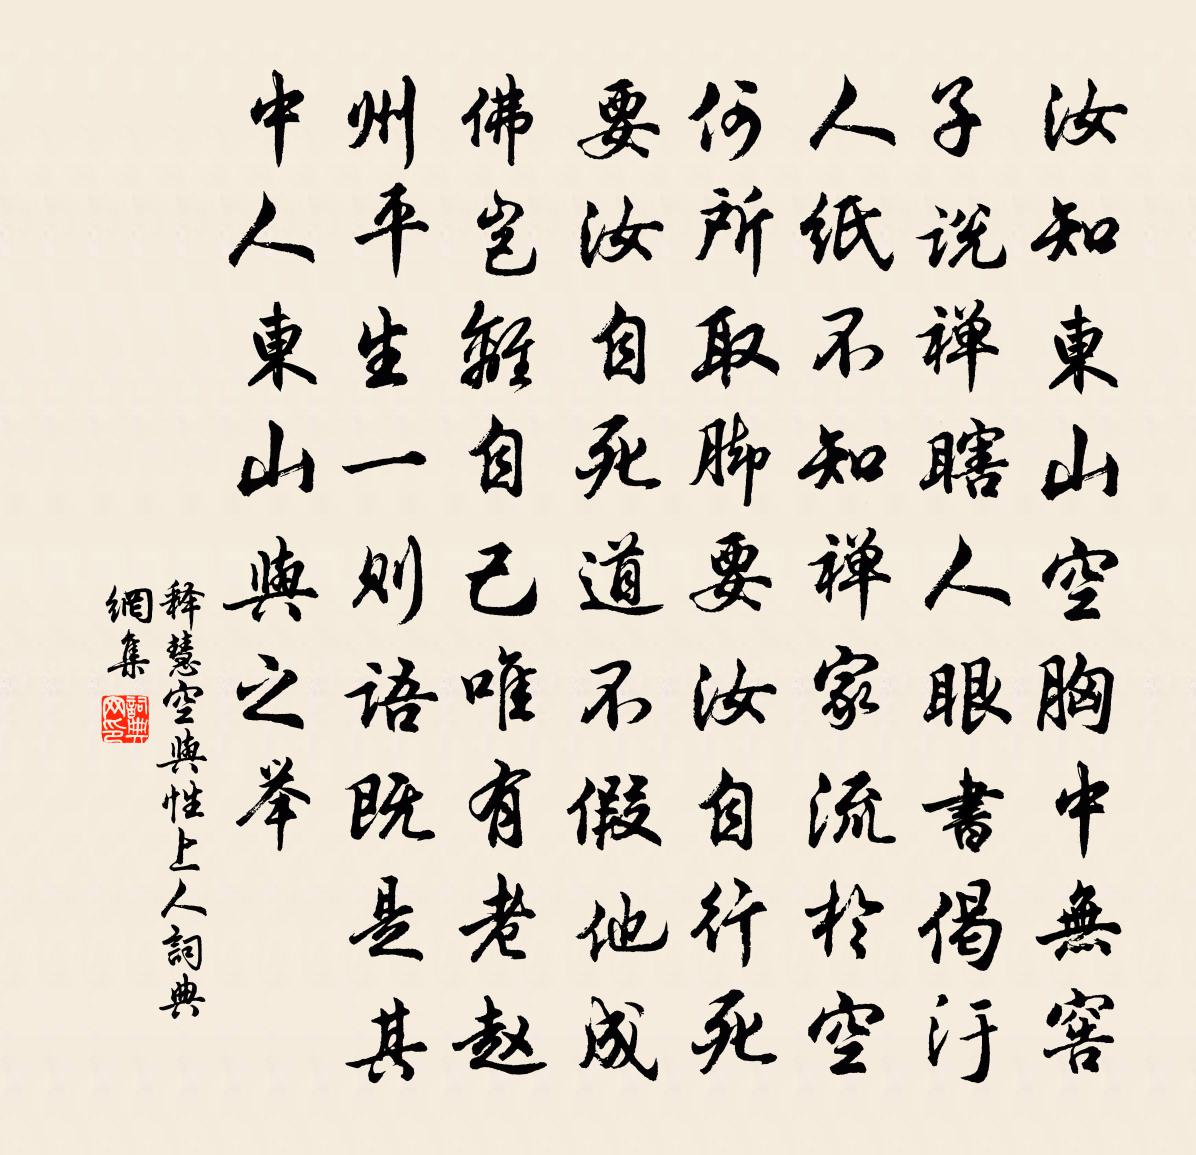 汝知東山空胸中無窖
子说禅瞎人眼書偈汙
人纸不知禅家流於空
何所取脚要汝自行死
要汝自死道不假他成
佛豈離自己唯有老赵
州平生一则语既是其
中人東山與之举
释慧空與性上人詞典
網集
詞典网印